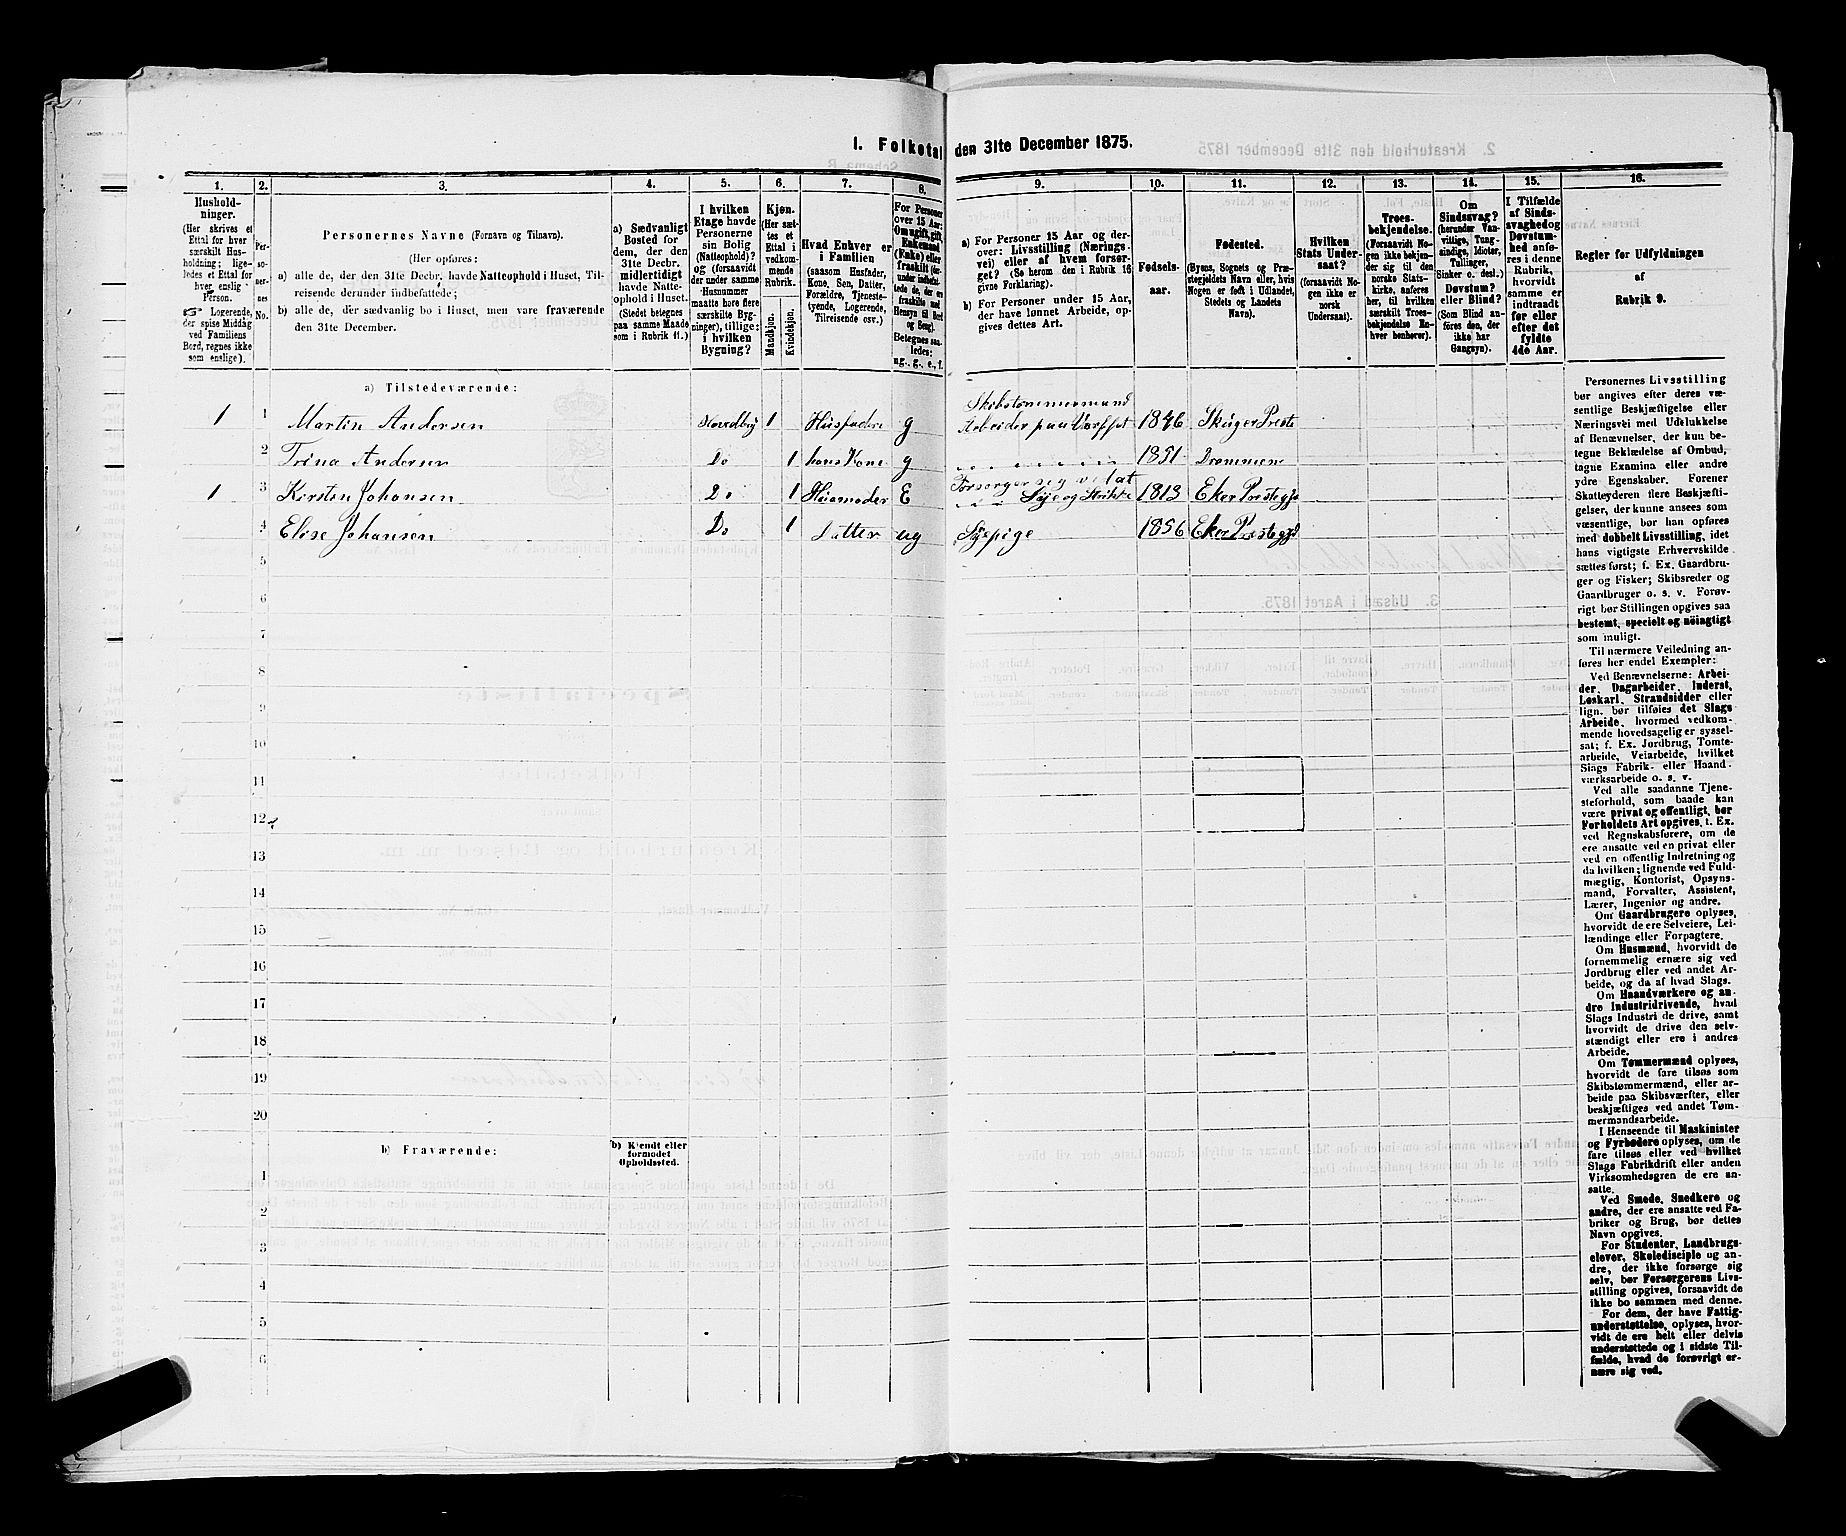 1. Folketal den 31te December 1875.
1. 2. 3. 4. 5. 6. 7. 8. 9. 10. 11. 12. 13. 14. 15. 16.
Hushold-
ninger.
(Her skrives et
Ettal for hver
særskilt Hus-
holdning; lige-
ledes et Ettal for
hver enslig
Person.
☞ Logerende,
der spise Middag
ved Familiens
Bord, regnes ikke
som enslige).
Per-
so-
ner-
nes
No.
Personernes Navne (Fornavn og Tilnavn).
(Her opføres:
a) alle de, der den 31te Decbr. havde Natteophold i Huset, Til-
reisende derunder indbefattede;
b) alle de, der sædvanlig bo i Huset, men vare fraværende
den 31te December.
a) Sædvanligt
Bosted for
dem, der den
31te Decbr.
midlertidigt
havde Natte-
ophold i Huset.
(Stedet betegnes
paa samme Maade
som i Rubrik 11.)
I hvilken
Etage havde
Personerne
sin Bolig
(Natteophold)?
og (forsaavidt
der under samme
Husnummer
maatte høre flere
særskilte Byg-
ninger), tillige:
i hvilken
Bygning?
Kjøn.
(Her sæt-
tes et
Ettal i
vedkom-
mende
Rubrik.
Mandkjøn.
Kvindekjøn.
Hvad Enhver er
i Familien
(saasom Husfader,
Kone, Søn, Datter,
Forældre, Tjeneste-
tyende, Logerende,
Tilreisende osv.)
For Personer
over 15 Aar:
Om ugift, gift,
Enkemand
(Enke) eller
fraskilt (her-
under indbefat-
tede de, der ere
fraskilte med
Hensyn til Bord
og Seng).
Betegnes saa-
ledes:
ug., g., e., f.
a) For Personer 15 Aar og der-
over: Livsstilling (Nærings-
vei) eller af hvem forsør-
get? (Se herom den i Rubrik 16
givne Forklaring).
b) For Personer under 15 Aar,
der have lønnet Arbeide, op-
gives dettes Art.
Fødsels-
aar.
Fødested.
(Byens, Sognets og Præ-
stegjeldets Navn eller, hvis
Nogen er født i Udlandet,
Stedets og Landets
Navn).
Hvilken
Stats Under-
saat?
(forsaavidt No-
gen ikke er
norsk
Undersaat).
Troes-
bekjendelse.
(Forsaavidt No-
gen ikke bekjen-
der sig til den
norske Stats-
kirke, anføres
her, til hvilken
særskilt Troes-
bekjendelse En-
hver henhører).
Om
Sindssvag?
(herunder Van-
vittige, Tung-
sindige, Idioter,
Tullinger,
Sinker o. desl.)
Døvstum?
eller Blind?
(Som Blind an-
føres den, der
ikke har
Gangsyn).
I Tilfælde
af Sinds-
svaghed og
Døvstum-
hed anfø-
res i denne
Rubrik,
hvorvidt
samme er
indtraadt
før eller
efter det
fyldte
4de Aar.
Regler for Udfyldningen
af
Rubrik 9.
a) Tilstedeværende:
Skibstømmermand
1 1 Martin Andersen Hovedbyg 1 Husfader g Arbeider paa Værftet 1846 Skuger Preste
2 Trina Andersen Do 1 hans Kone g 1851 Drammen
Forsørger sig ved at
1 3 Kirsten Johansen Do 1 Huusmoder E Sye og Strikke 1813 Eker Prestegjd
4 Elise Johansen Do 1 Datter ug Sypige 1856 Eker Prestegjd
5
6
7
8
9
10
11
12
13
14
15
16
17
18
19
20
b) Fraværende:
b) Kjendt eller
formodet
Opholdssted.
1
2
3
4
5
6
Personernes Livsstilling
bør angives efter deres væ-
sentlige Beskjæftigelse eller
Næringsvei med Udelukkelse
af Benævnelser, der kun be-
tegne Beklædelse af Ombud,
tagne Examina eller andre
ydre Egenskaber. Forener
Skatteyderen flere Beskjæfti-
gelser, der kunne ansees som
væsentlige, bør han opføres
med dobbelt Livsstilling, idet
hans vigtigste Erhvervskilde
sættes først; f. Ex. Gaardbru-
ger og Fisker; Skibsreder og
Gaardbruger o. s. v. Forøv-
rigt bør Stillingen opgives saa
bestemt, specielt og nöiagtigt
som muligt.
Til nærmere Veiledning an-
føres her endel Exempler:
Ved Benævnelserne: Arbei-
der, Dagarbeider, Inderst,
Løskarl, Strandsidder eller
lign. bør tilføies det Slags
Arbeide, hvormed vedkom-
mende hovedsagelig er syssel-
sat; f. Ex. Jordbrug, Tomte-
arbeide, Veiarbeide, hvilket
Slags Fabrik- eller Haand-
værksarbeide o. s. v.
Ved alle saadanne Tjene-
steforhold, som baade kan
være privat og offentligt, bør
Forholdets Art opgives, t. Ex.
ved Regnskabsførere, om de
ere ansatte ved en privat eller
ved en offentlig Indretning og
da hvilken; lignende ved Fuld-
mægtig, Kontorist, Opsyns-
mand, Forvalter, Assistent,
Lærer, Ingeniør og andre.
Om Gaardbrugere oplyses,
hvorvidt de ere Selveiere, Lei-
lændinge eller Forpagtere.
Om Husmænd, hvorvidt de
fornemmelig ernære sig ved
Jordbrug eller ved andet Ar-
beide, og da af hvad Slags.
Om Haandværkere og an-
dre Industridrivende, hvad
Slags Industri de drive, samt
hvorvidt de drive den selv-
stændigt eller ere i andres
Arbeide.
Om Tømmermænd oplyses,
hvorvidt de fare tilsøs som
Skibstømmermænd, eller ar-
beide paa Skibsværfter, eller
beskjæftiges ved andet Tøm-
mermandsarbeide.
I Henseende til Maskinister
og Fyrbødere oplyses, om de
fare tilsøs eller ved hvilket
Slags Fabrikdrift eller anden
Virksomhedsgren de ere an-
satte.
Ved Smede, Snedkere og
andre, der ere ansatte ved Fa-
briker og Brug, bør dettes
Navn opgives.
For Studenter, Landbrugs-
elever, Skoledisciple og an-
dre, der ikke forsørge sig
selv, bør Forsørgerens Livs-
stilling opgives, forsaavidt de
ikke bo sammen med denne.
For dem, der have Fattig-
understøttelse, oplyses, hvor-
vidt de ere helt eller delvis
understøttede og i sidste Til-
fælde, hvad de forøvrigt er-
nære sig ved.